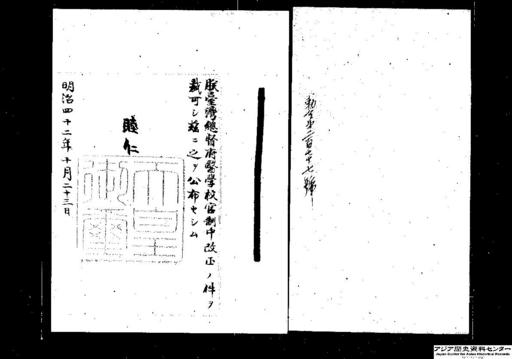 勅令第二百六十七號
朕臺灣總督府醫學校官制中改正ノ件ヲ
裁可シ玆ニ之ヲ公布セシム
睦仁
天皇御璽
明治四十二年十月二十三日
アジア歴史資料センター
Japan Center for Asian Historical Records